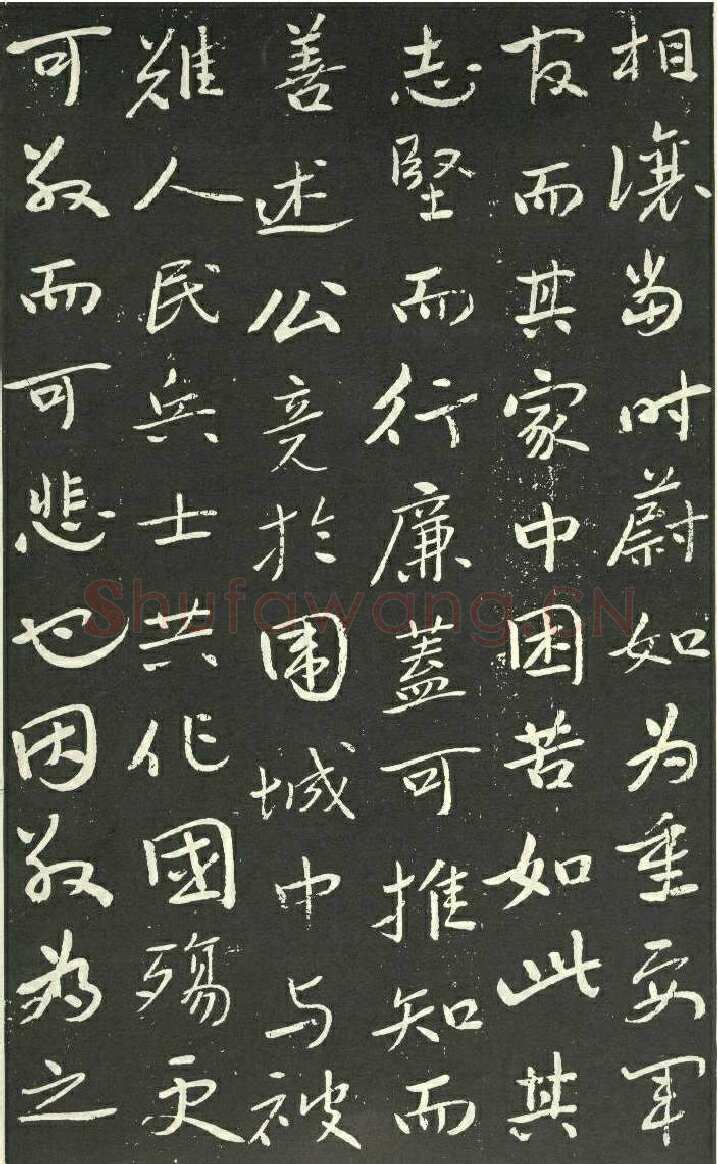 相讓當时蔚如为重要军
官而其家中困苦如此其
志堅而行廉蓋可推知而
善述公竟於围城中与被
難人民兵士共作國殇更
可敬而可悲也因敬為之
Shufawang.CN